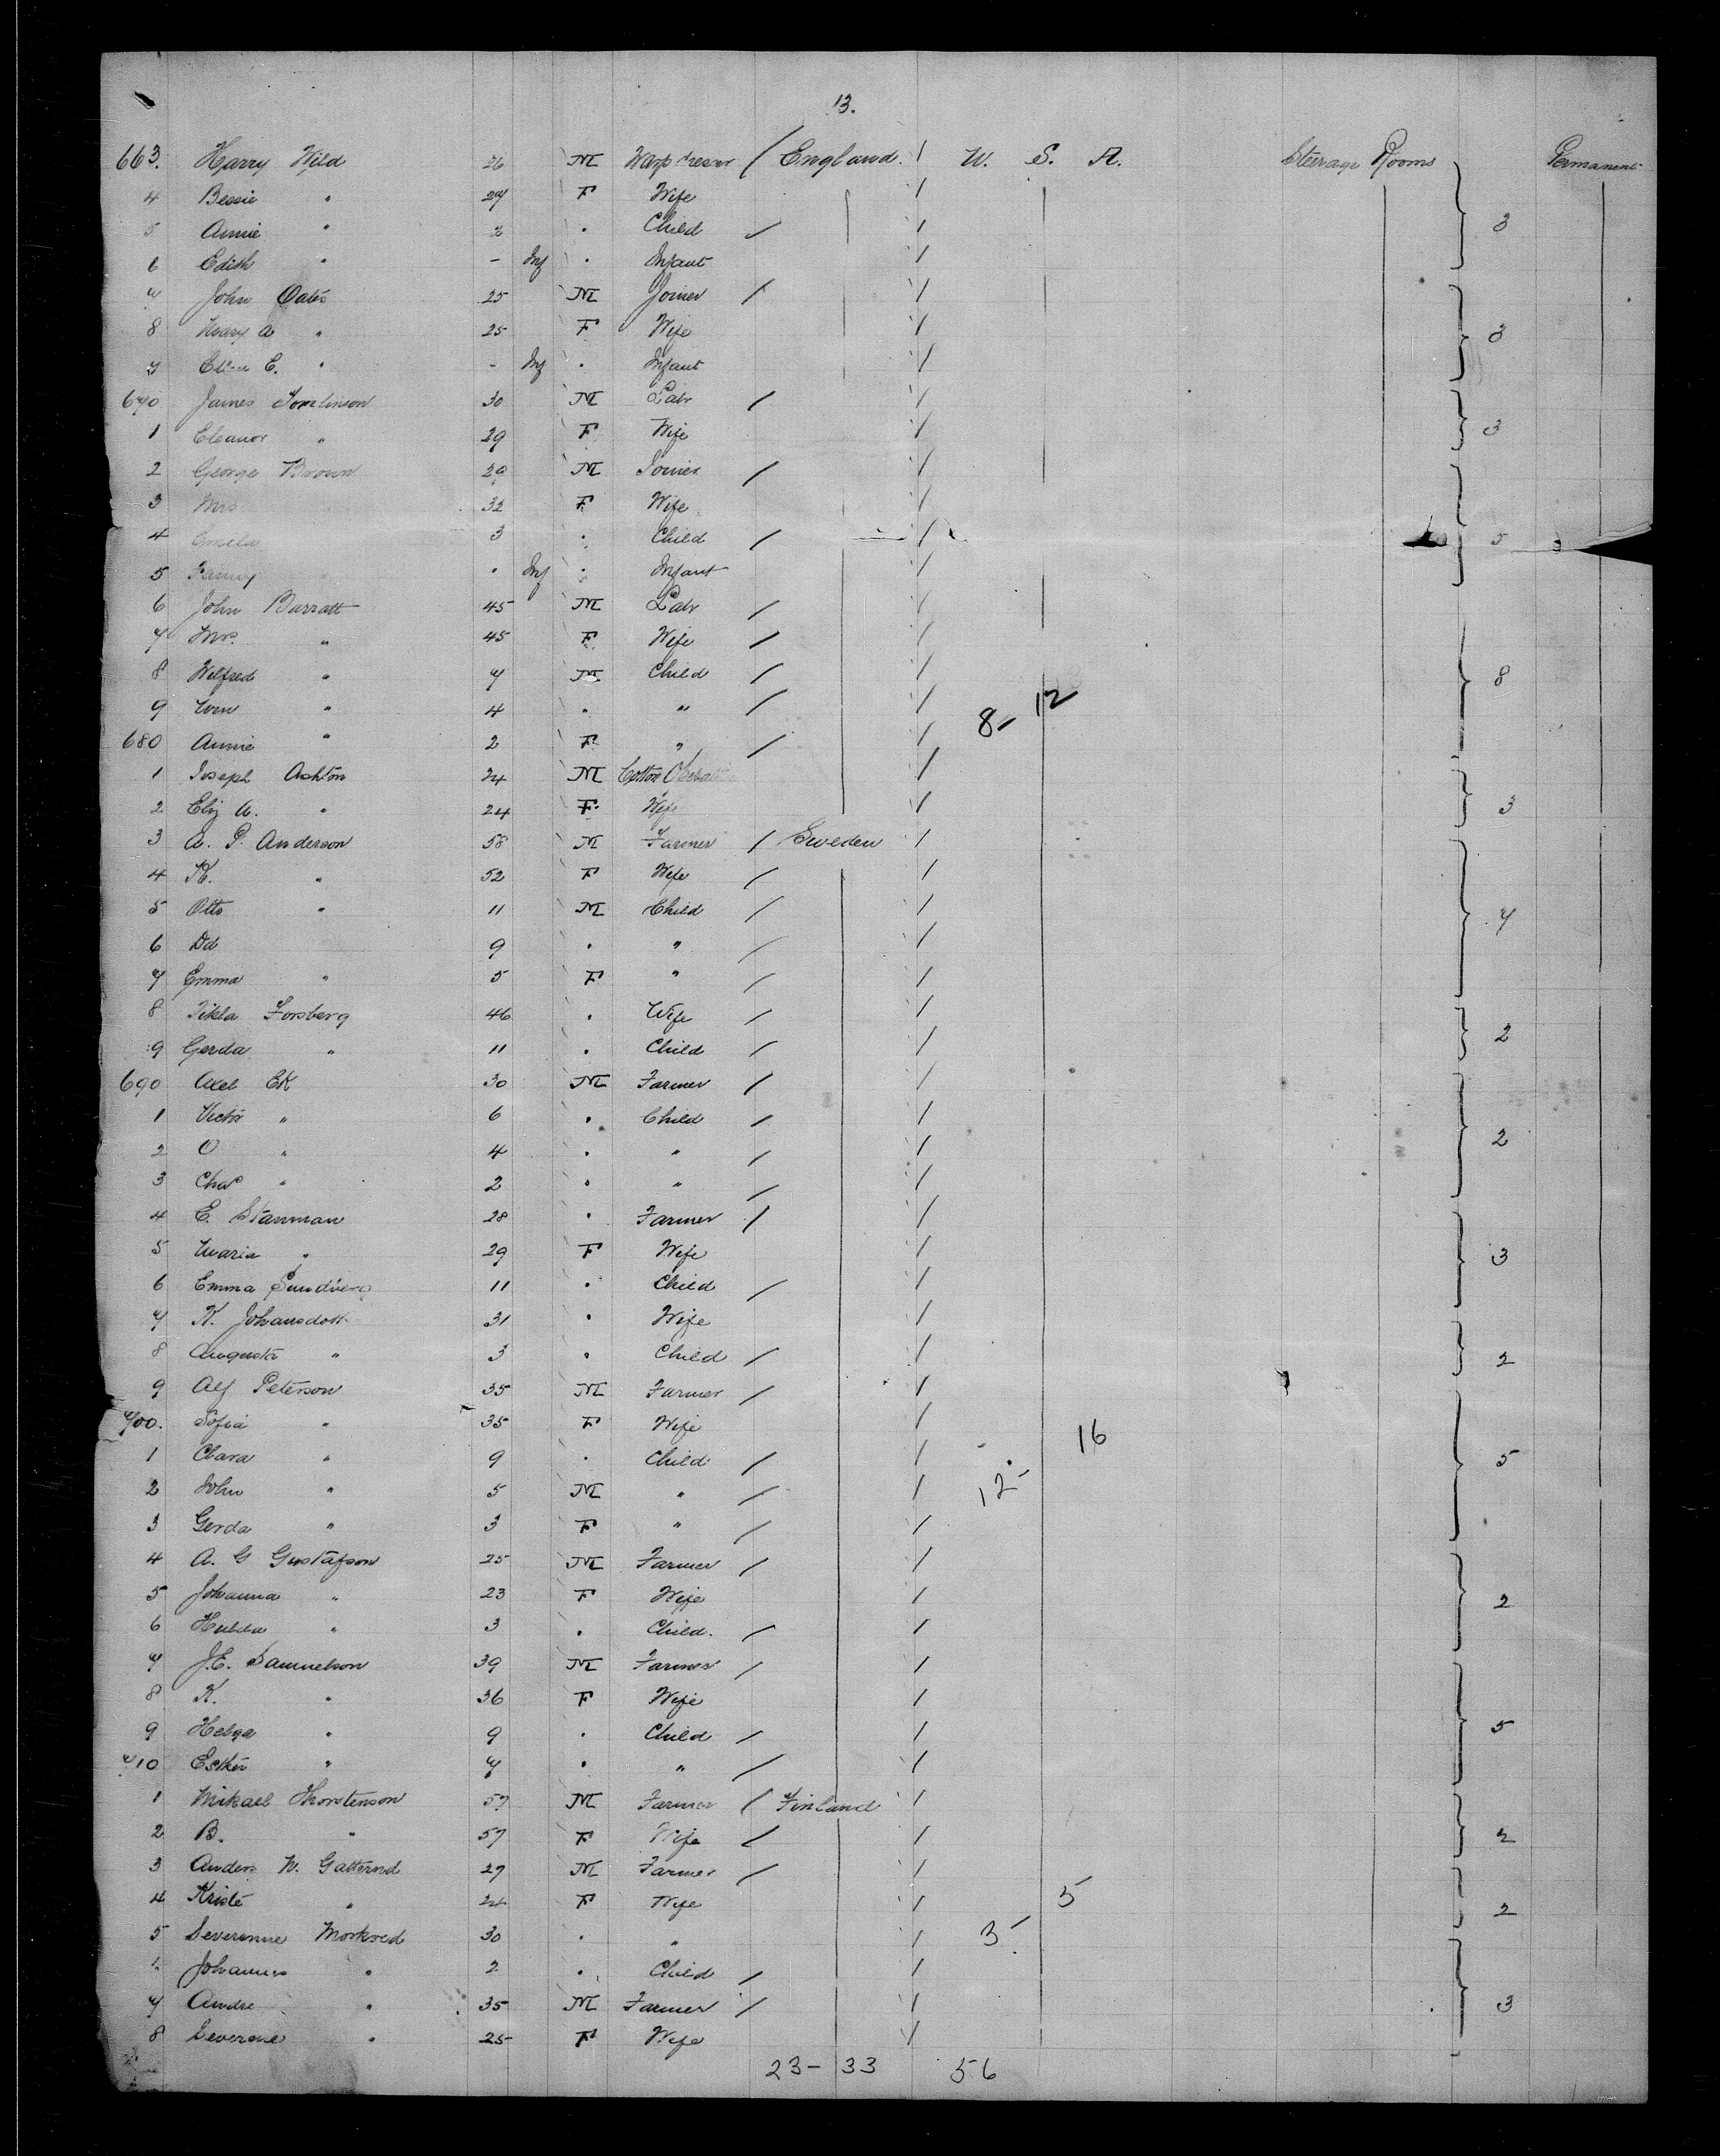 13.
663. Harry Wild 26 M Warp dresser / England. / U. S. A. Steerage Rooms Permanent
4 Bessie " 27 F Wife /
5 Annie " 2 " Child / / 3
6 Edith " - Inf " Infant /
7 John Oates 25 M Joiner / /
8 Mary A " 25 F Wife / 3
9 Ellen C. " - Inf " Infant /
670 James Tomlinson 30 M Labr / /
1 Eleanor " 29 F Wife / 3
2 George Brown 29 M Joiner / /
3 Mrs 32 F Wife /
4 3 " Child / / 5
5 Fanny " Inf " Infant /
6 John Barratt 45 M Labr / /
7 Mrs. " 45 F Wife / /
8 Wilfred " 7 M Child / / 8
9 Wm " 4 " " / / 8- 12
680 Annie " 2 F " / /
1 Joseph Ashton 24 M Cotton /
2 Eliz A. " 24 F Wife / 3
3 A. P. Anderson 58 M Farmer / Sweden /
4 K. " 52 F Wife / /
5 Otto " 11 M Child / / 7
6 Dd 9 " " / /
7 Emma " 5 F " / /
8 Tikla Forsberg 46 " Wife / / 2
9 Gerda " 11 " Child / /
690 Axel EK 30 M Farmer / /
1 Victor " 6 " Child / / 2
2 O " 4 " " / /
3 Chas " 2 " " / /
4 E. Stanman 28 " Farmer / /
5 Maria " 29 F Wife / 3
6 Emma Sundberg 11 " Child / /
7 K. Johansdott 31 " Wife /
8 Augusta " 3 " Child / / 2
9 Alf Peterson 35 M Farmer / /
700. Sofia " 35 F Wife / 16
1 Clara " 9 " Child / / 5
2 John " 5 M " / / 12-
3 Gerda " 3 F " / /
4 A. G Gustafson 25 M Farmer / /
5 Johanna " 23 F Wife / 2
6 Hulda " 3 " Child. / /
7 J.E. Samuelson 39 M Farmer / /
8 K. " 36 F Wife /
9 Helga " 9 " Child / / 5
710 Esther " 7 " " / /
1 Mikael Thorstenson 57 M Farmer / Finland /
2 B. " 57 F Wife / / 2
3 Anders N. Gatternd 27 M Farmer / /
4 Kristé " 24 F Wife / 5 2
5 Severenne Morkved 30 " " / 3-
Johannes " 2 " Child / /
7 Andre " 35 M Farmer / / 3
8 Severene " 25 F Wife /
23- 33 56